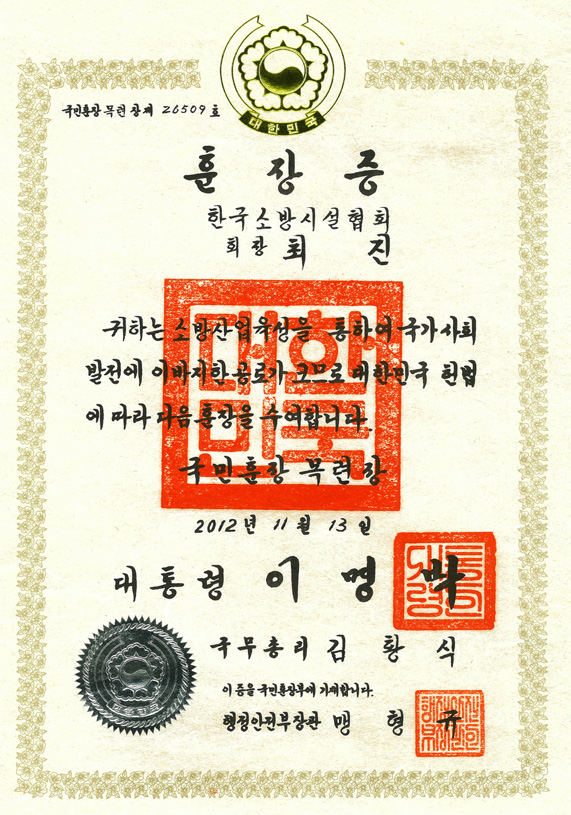 대한민국
국민훈장 목련장 제 26509 호
훈장증
한국소방시설협회
회장 최 진
귀하는 소방산업육성을 통하여 국가사회
발전에 이바지한 공로가 크므로 대한민국 헌법
에 따라 다음 훈장을 수여합니다.
국민훈장 목련장
2012년 11월 13일
대통령 이 명 박
국무총리 김 황 식
이 증을 국민훈장부에 기재합니다.
행정안전부장관 맹 형 규
대한민국